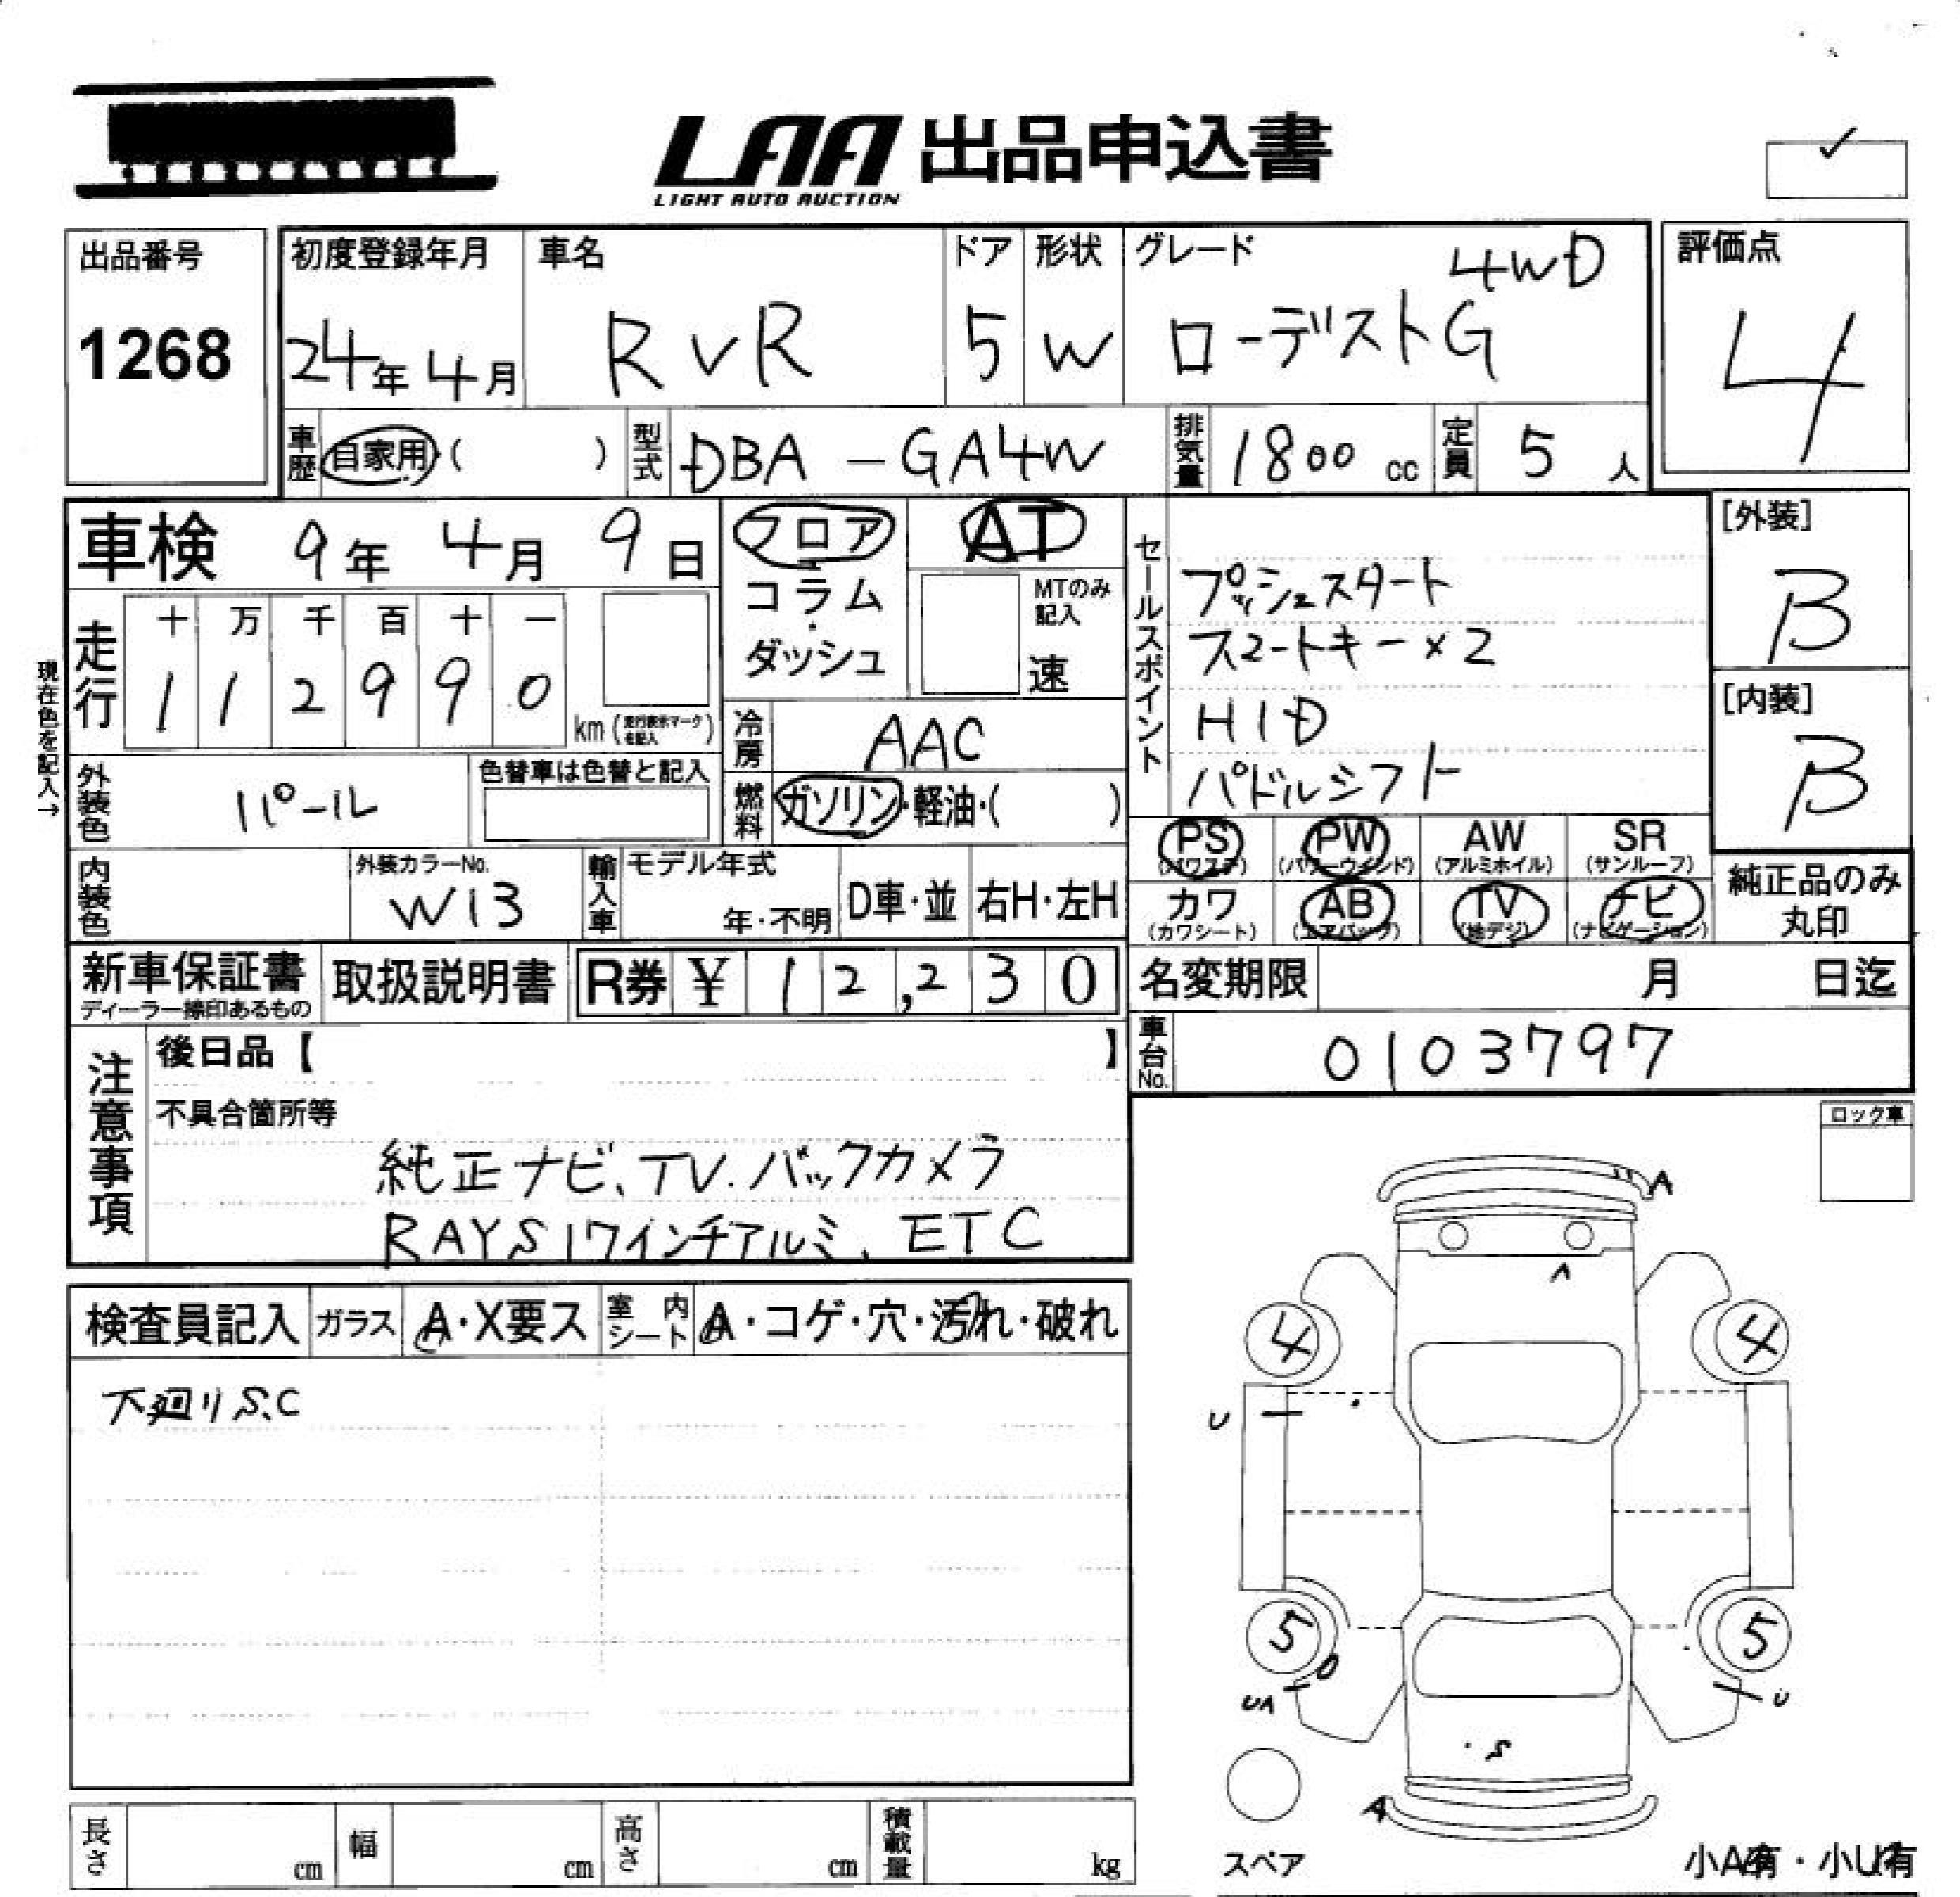 LAA 出品申込書
LIGHT AUTO AUCTION
✓
出品番号
1268
初度登録年月
24年 4月
車名
RVR
ドア
5
形状
W
グレード
4WD
ローデストG
評価点
4
車歴
自家用・( )
型式
DBA-GA4W
排気量
1800 cc
定員
5 人
車検 9年 4月 9日
現在色を記入→
走行
十 万 千 百 十 一
1 1 2 9 9 0
km (走行表示マークを記入)
フロア
コラム
・
ダッシュ
AT
MTのみ記入
速
冷房
AAC
燃料
ガソリン・軽油・( )
外装色
パール
色替車は色替と記入
内装色
外装カラーNo.
W13
輸入車
モデル年式
年・不明
D車・並
右H・左H
セールスポイント
プッシュスタート
スマートキー×2
HID
パドルシフト
[外装]
B
[内装]
B
PS
(パワステ)
PW
(パワーウインド)
AW
(アルミホイル)
SR
(サンルーフ)
カワ
(カワシート)
AB
(エアバック)
TV
(地デジ)
ナビ
(ナビゲーション)
純正品のみ
丸印
新車保証書
ディーラー捺印あるもの
取扱説明書
R券 ¥ 1 2,2 3 0
名変期限 月 日迄
車台No.
0103797
注意事項
後日品【 】
不具合箇所等
純正ナビ、TV.バックカメラ
RAYS17インチアルミ、ETC
ロック車
検査員記入
ガラス
A・X要ス
室内シート
A・コゲ・穴・汚れ・破れ
下廻りS.C
A
A
4
4
U
5
5
UA
U
S
A
スペア
小A有・小U有
長さ cm
幅 cm
高さ cm
積載量 kg